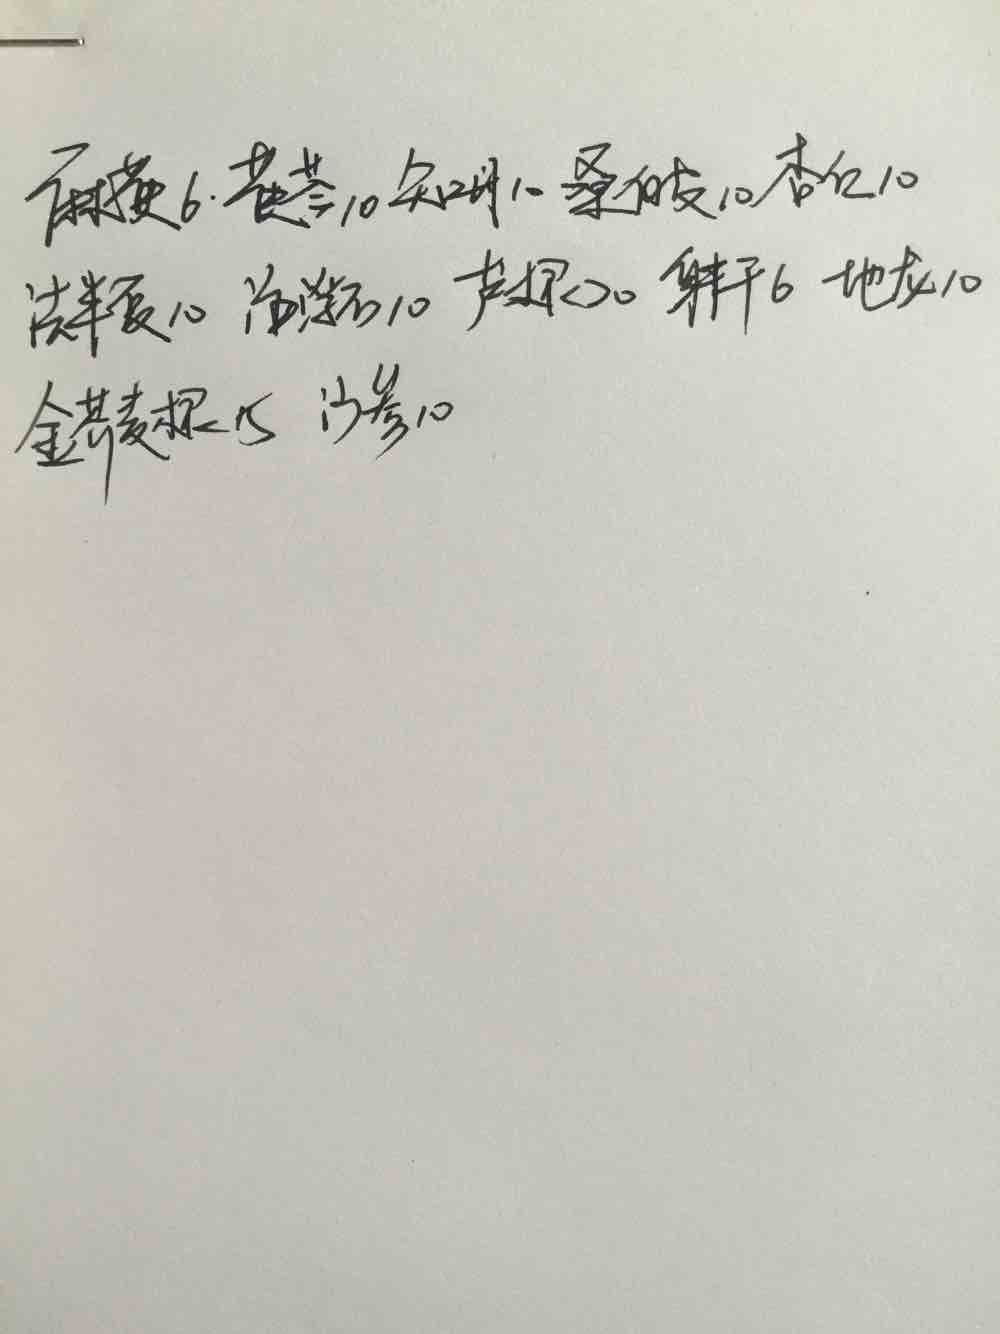 麻黄6. 黄芩10 知母10 桑白皮10 杏仁10
法半夏10 海浮石10 芦根20 射干6 地龙10
金荞麦根15 沙参10